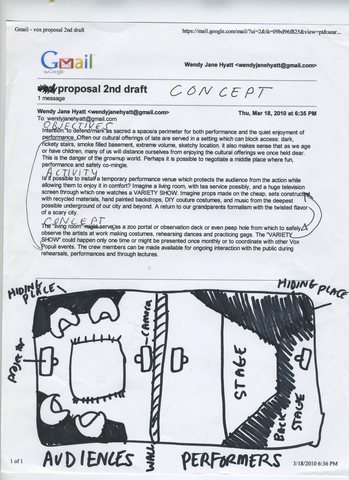 Gmail - vox proposal 2nd draft
https://mail.google.com/mail/?ui=2&ik=09bd96f825&view=pt&sear...
Gmail
by Google
Wendy Jane Hyatt <wendyjanehyatt@gmail.com>
proposal 2nd draft
CONCEPT
1 message
Wendy Jane Hyatt <wendyjanehyatt@gmail.com>
Thu, Mar 18, 2010 at 6:35 PM
To: wendyjanehyatt@gmail.com
OBJECTIVES
Intention: to defend/mark as sacred a space/perimeter for both performance and the quiet enjoyment of
performance. Often our cultural offerings of late are served in a setting which can block access: dark,
rickety stairs, smoke filled basement, extreme volume, sketchy location. It also makes sense that as we age
or have children, many of us will distance ourselves from enjoying the cultural offerings we once held dear.
This is the danger of the grownup world. Perhaps it is possible to negotiate a middle place where fun,
performance and safety co-mingle.
ACTIVITY
Is it possible to install a temporary performance venue which protects the audience from the action while
allowing them to enjoy it in comfort? Imagine a living room, with tea service possibly, and a huge television
screen through which one watches a VARIETY SHOW. Imagine props made on the cheap, sets constructed
with recycled materials, hand painted backdrops, DIY couture costumes, and music from the deepest
possible underground of our city and beyond. A return to our grandparents formalism with the twisted flavor
of a scary city.
CONCEPT
The "living room" might serve as a zoo portal or observation deck or even peep hole from which to safely
observe the artists at work making costumes, rehearsing dances and practicing gags. The "VARIETY
SHOW" could happen only one time or might be presented once monthly or to coordinate with other Vox
Populi events. The crew members can be made available for ongoing interaction with the public during
rehearsals, performances and through lectures.
HIDING PLACE
HIDING PLACE
PROJECTOR
CAMERA
WALL
STAGE
BACK STAGE
AUDIENCES
PERFORMERS
1 of 1
3/18/2010 6:36 PM